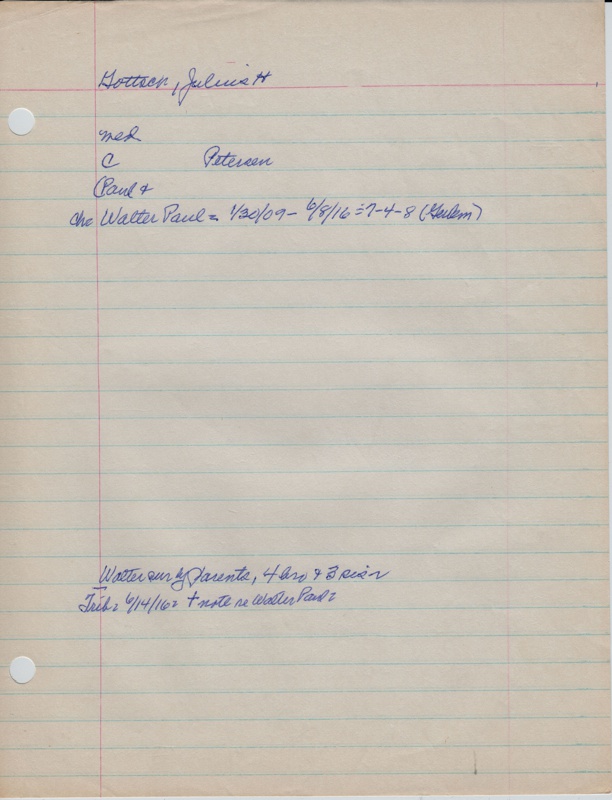 Gottsch, Julius H
med
C Petersen
(Paul +
chr Walter Paul = 1/30/09 - 6/8/16 = 7-4-8 (Harlem)
Walter sur by parents, 4 bro & 3 sis
Trib: 6/14/16: + note re Walter Paul: